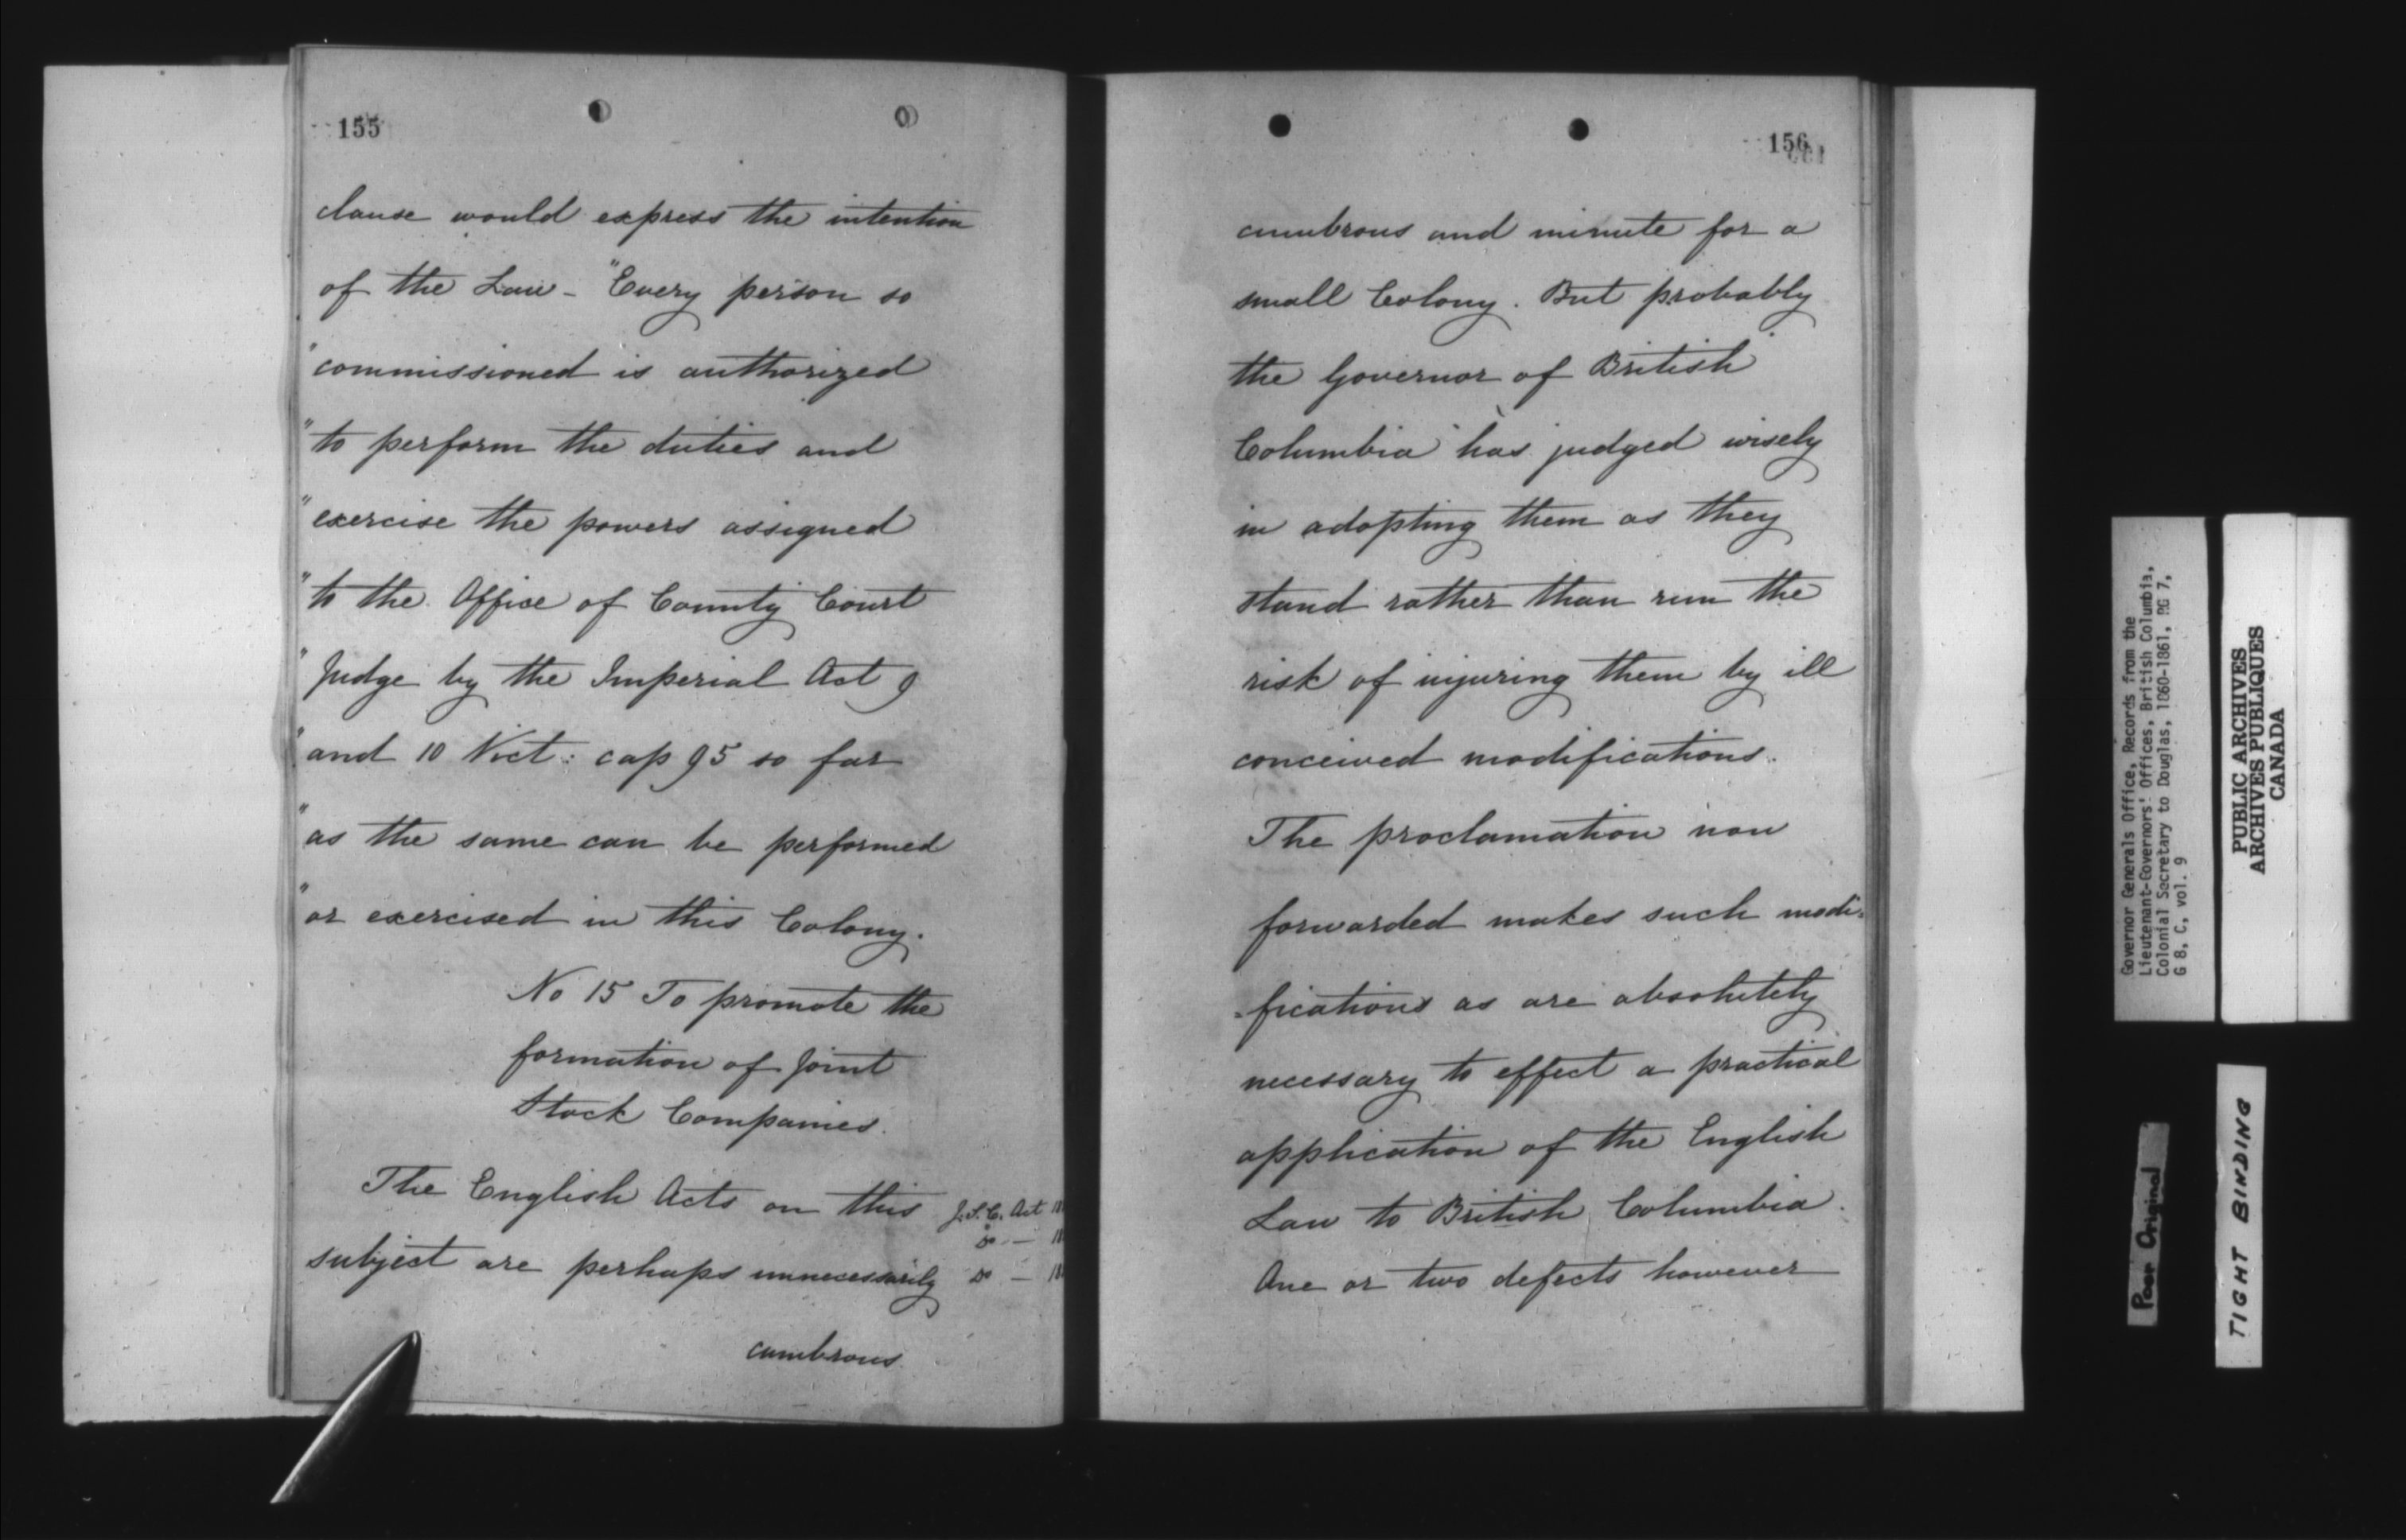 155
clause would express the intention
of the Law - "Every person so
"commissioned is authorized
"to perform the duties and
"exercise the powers assigned
"to the Office of County Court
"Judge by the Imperial Act 9
"and 10 Vict: cap 95 so far
"as the same can be performed
"or exercised in this Colony.
No 15 To promote the
formation of Joint
Stock Companies.
The English Acts on this
subject are perhaps unnecessarily
J.S.C. Act 18
Do - 18
Do - 18
cumbrous
156
cumbrous and minute for a
small Colony. But probably
the Governor of British
Columbia has judged wisely
in adopting them as they
stand rather than run the
risk of injuring them by ill
conceived modifications.
The proclamation now
forwarded makes such modi=
=fications as are absolutely
necessary to effect a practical
application of the English
Law to British Columbia.
One or two defects however
Governor Generals Office, Records from the
Lieutenant-Governors' Offices, British Columbia,
Colonial Secretary to Douglas, 1860-1861, RG 7,
G 8, C, vol. 9
PUBLIC ARCHIVES
ARCHIVES PUBLIQUES
CANADA
Poor Original
TIGHT BINDING